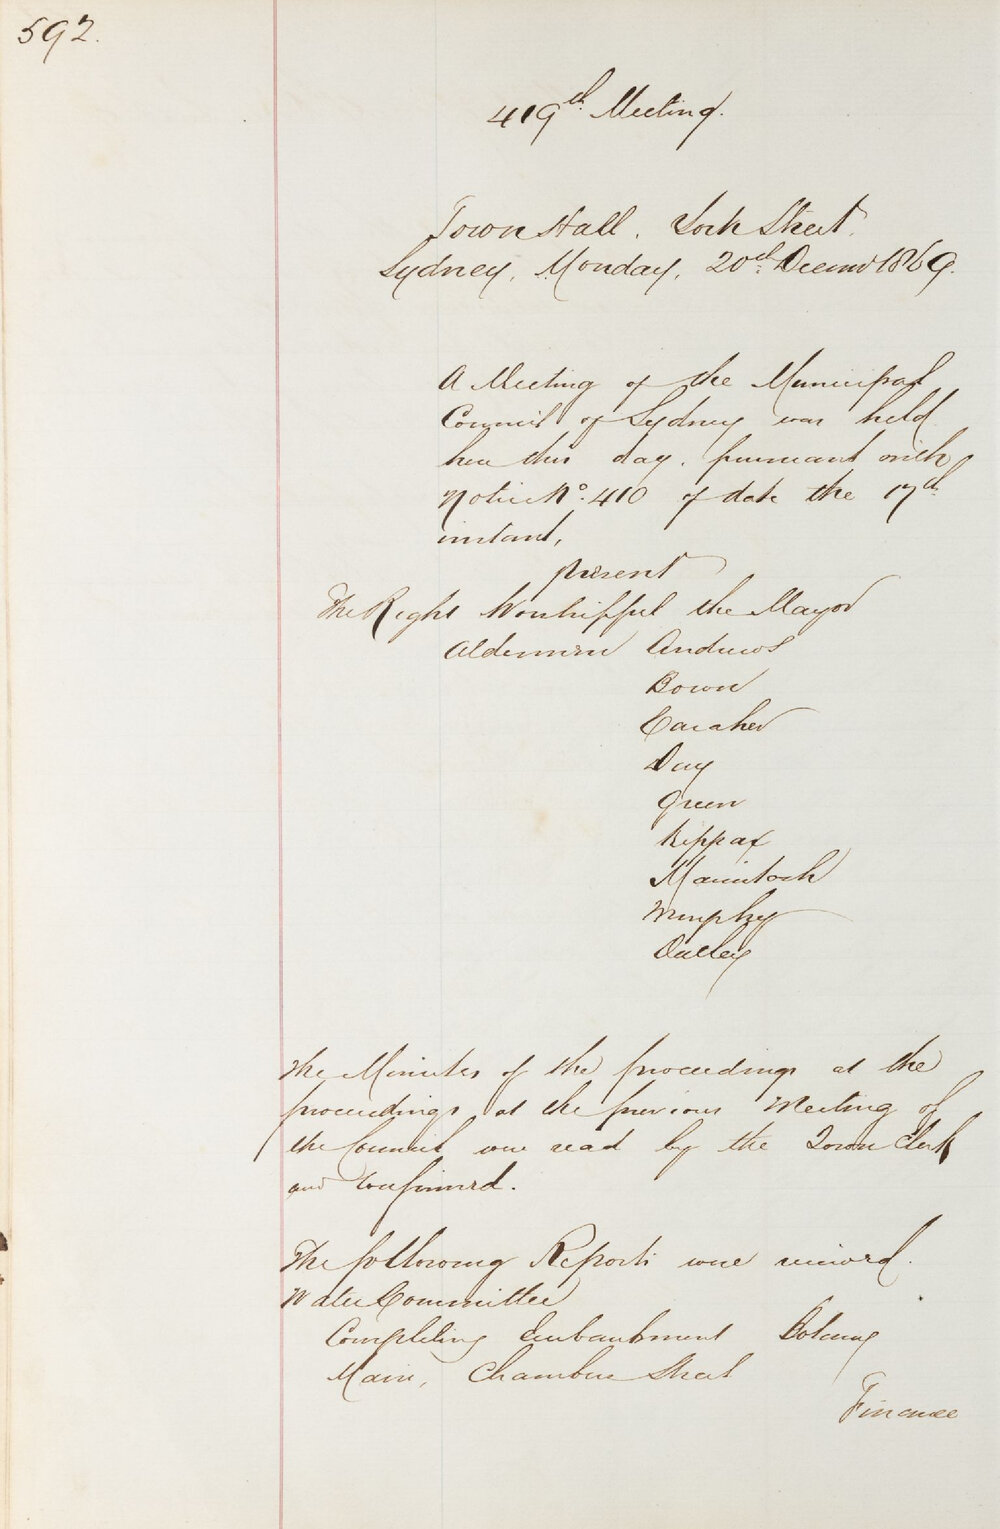 592.
419th Meeting.
Town Hall. York Street.
Sydney, Monday, 20th Decemr 1869.
A Meeting of the Municipal
Council of Sydney was held
here this day. pursuant with
Notice No. 410 of date the 17th
instant,
present
The Right Worshipful the Mayor
Aldermen Andrews
Bown
Caraher
Day
Green
Kippax
Macintosh
Murphy
Oatley
The Minutes of the proceedings at the
proceedings at the previous Meeting of
the Council were read by the Town Clerk
and Confirmed.
The following Reports were received.
Water Committee
Completing Embankment Botany
Main, Chambers Street
Finance